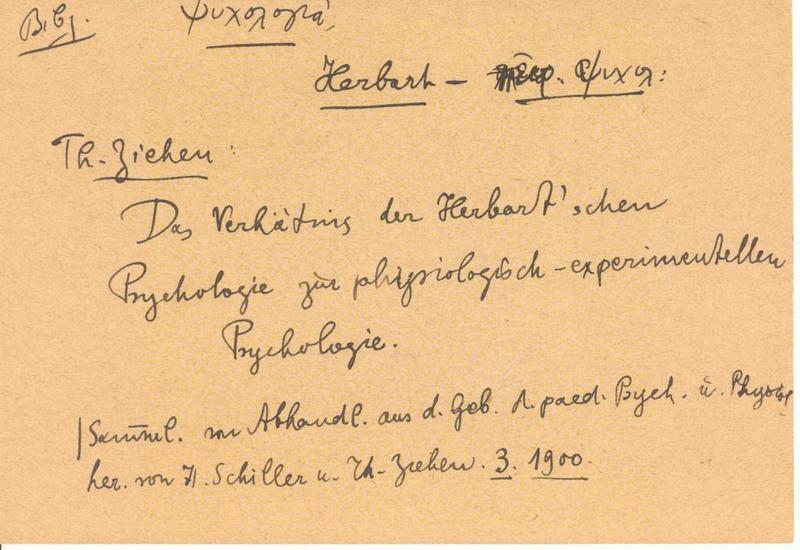 Βιβλ. Ψυχολογία,
Herbart – πειρ. Ψυχολ:
Th. Ziehen:
Das Verhätnis der Herbart'schen
Psychologie zur physiologisch-experimentellen
Psychologie.
Samml. von Abhandl. aus d. Geb. d. paed. Psych. u. Physiol
her. von H. Schiller u. Th. Ziehen. 3. 1900.